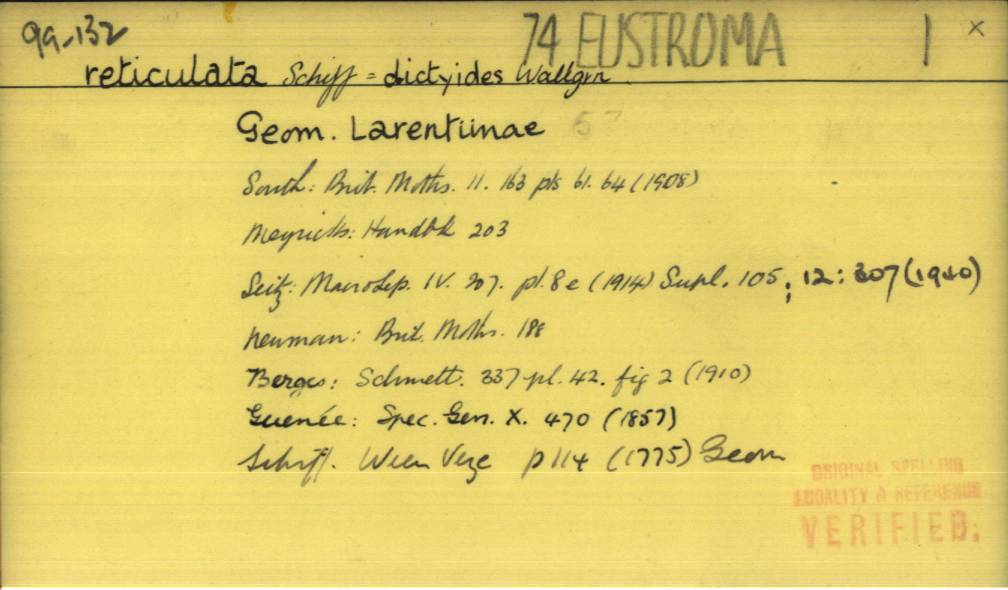 99-132 74 EUSTROMA 1 ×
reticulata Schiff = dictyides Wallgrn.
Geom. Larentiinae 67
South: Brit. Moths. 11. 163 pls 61. 64 (1908)
Meyrick: Handbk 203
Seitz: MacroLep. IV. 207. pl. 8 e (1914) Supl. 105; 12: 307 (1940)
Newman: Brit. Moths. 188
Berges: Schmett. 337 pl. 42. fig 2 (1910)
Guenée: Spec. Gen. X. 470 (1857)
Schiff. Wien Verz p 114 (1775) Geom
ORIGINAL SPELLING
LOCALITY & REFERENCE
VERIFIED.